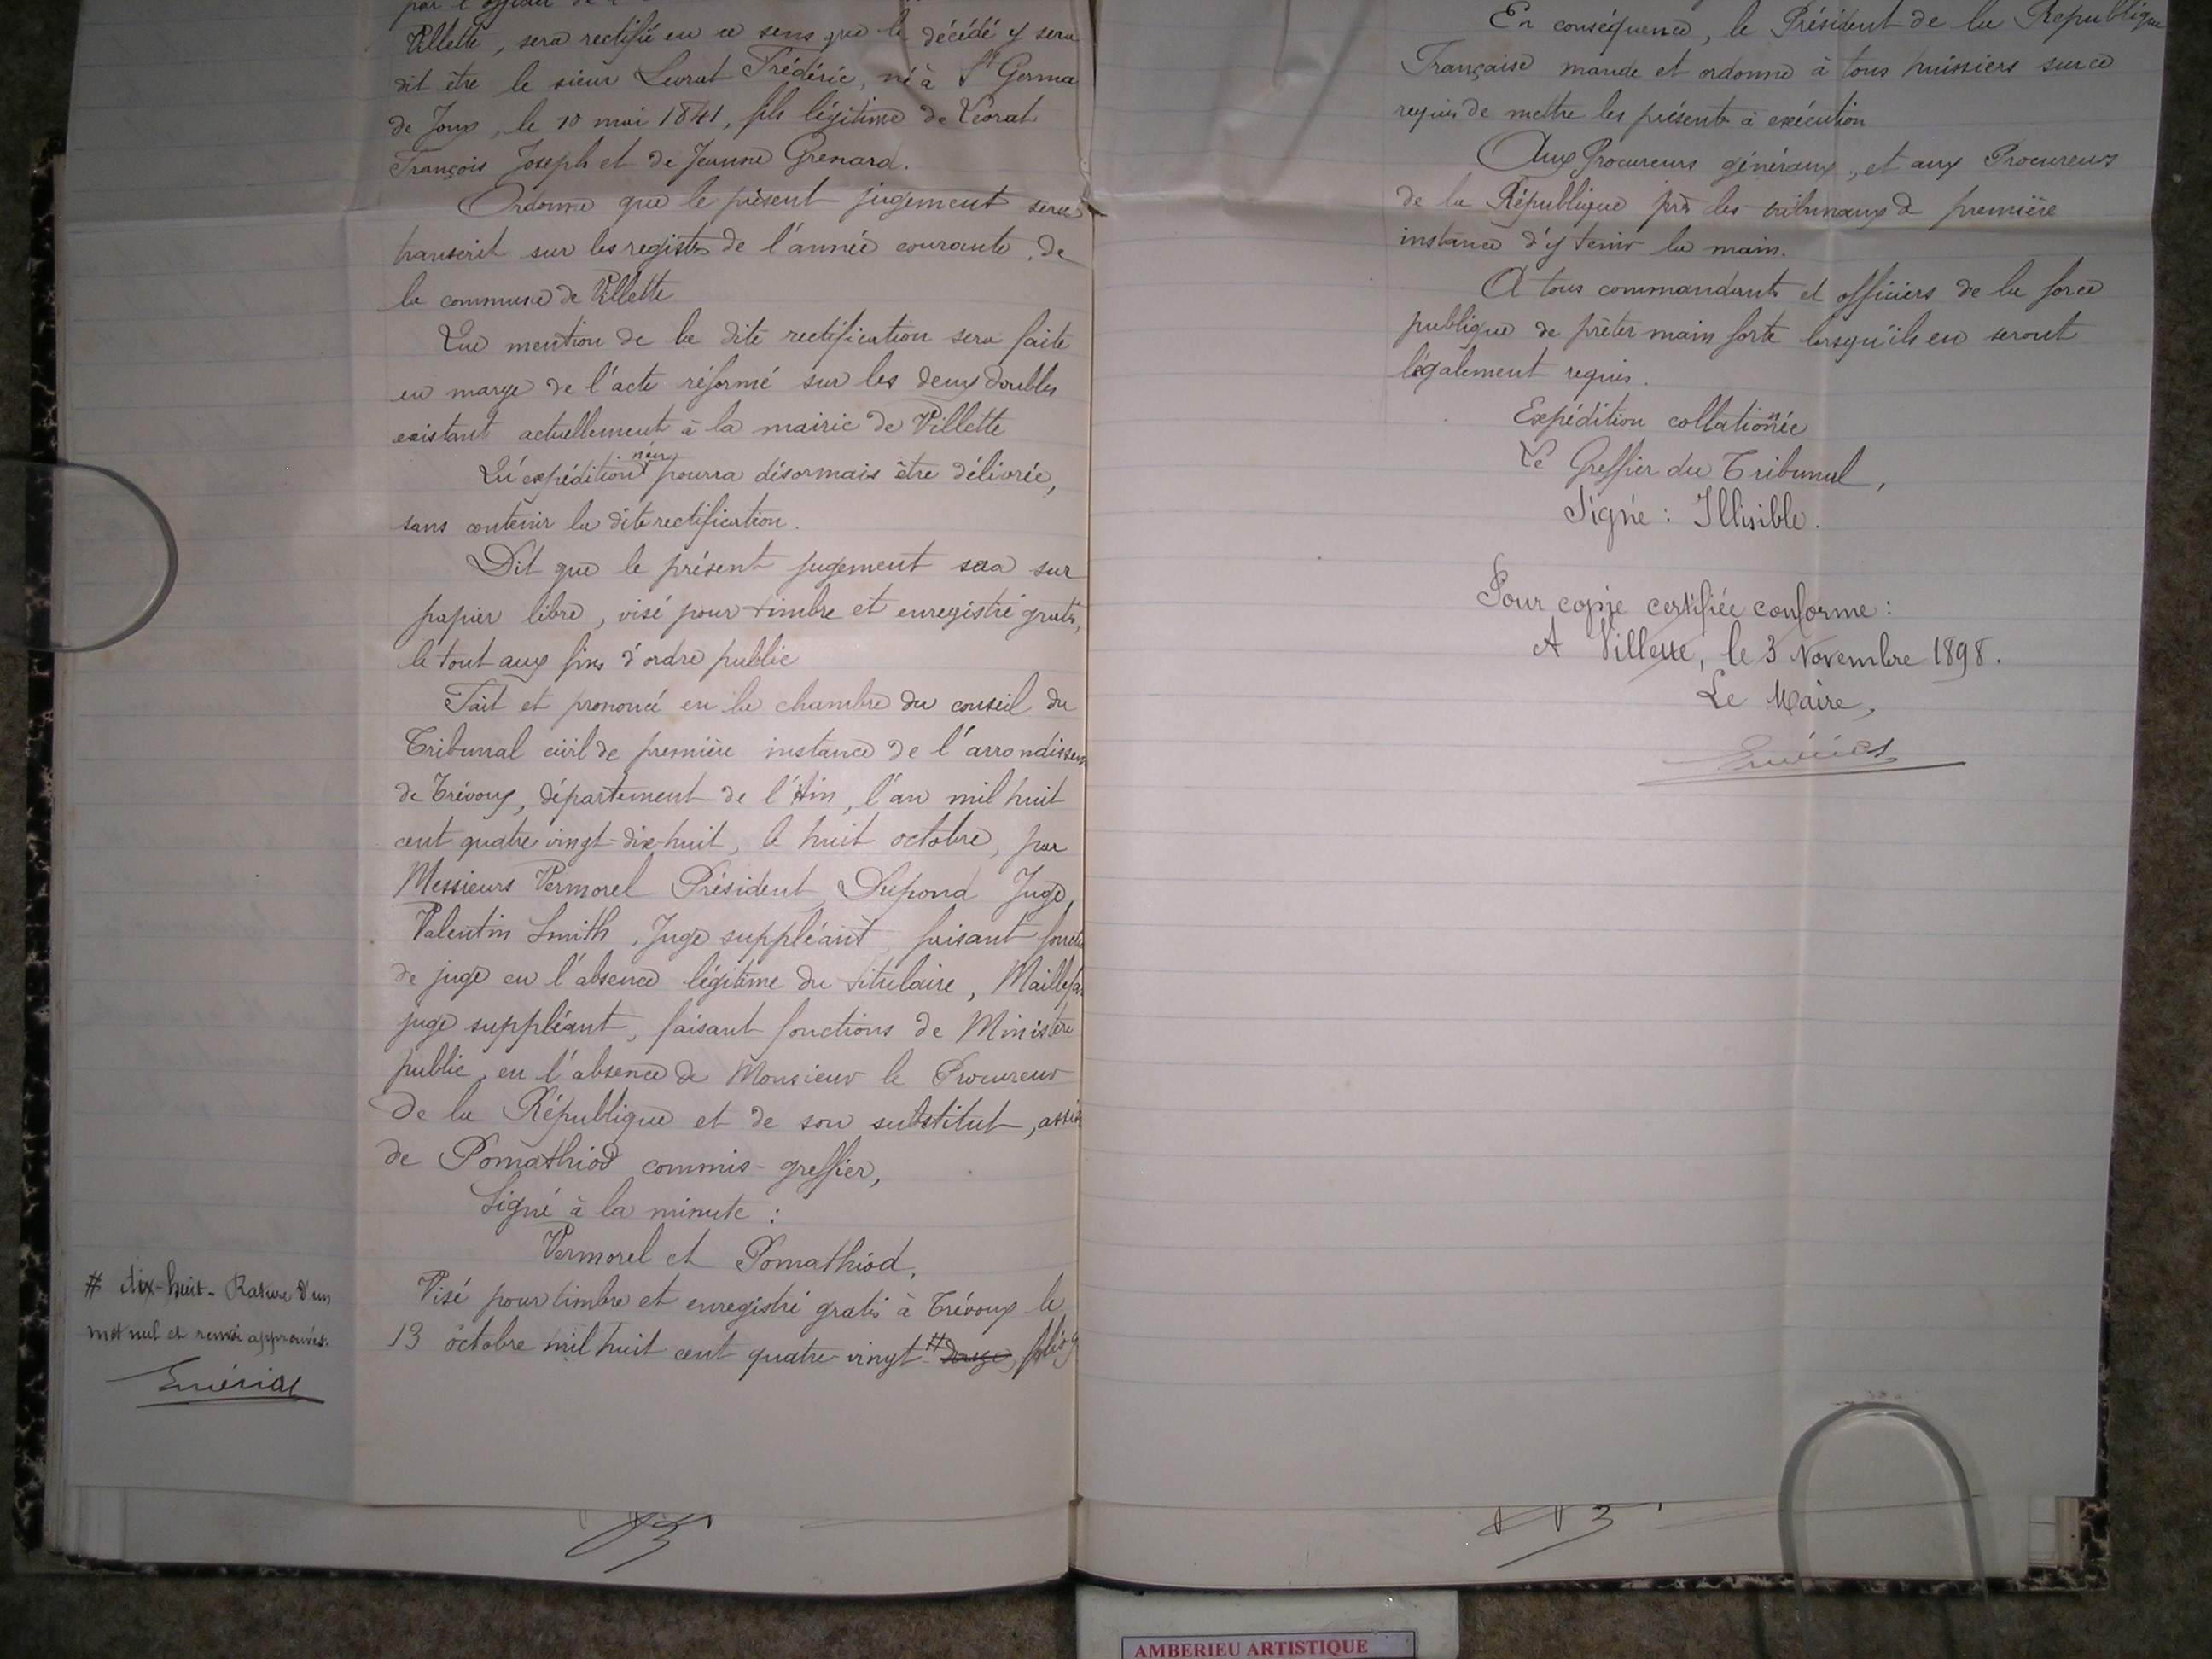 par l'officier de l'
Villette, sera rectifié en ce sens que le décédé y sera
dit être le sieur Levrat Frédéric, né à St Germa
de Joux, le 10 mai 1841, fils légitime de Levrat
François Joseph et de Jeanne Grenard.
Ordonne que le présent jugement sera
transcrit sur les registres de l'année courante, de
la commune de Villette
Que mention de la dite rectification sera faite
en marge de l'acte réformé sur les deux doubles
existant actuellement à la mairie de Villette
Qu'expédition n'en pourra désormais être délivrée,
sans contenir la dite rectification.
Dit que le présent jugement sera sur
papier libre, visé pour timbre et enregistré gratis,
le tout aux fins d'ordre public
Fait et prononcé en la chambre du conseil du
Tribunal civil de première instance de l'arrondissem
de Trévoux, département de l'Ain, l'an mil huit
cent quatre vingt-dix-huit, le huit octobre, par
Messieurs Vermorel Président, Dupond Juge,
Valentin Smith, Juge suppléant, faisant foncti
de juge en l'absence légitime du titulaire, Maillefa
juge suppléant, faisant fonctions de Ministère
public, en l'absence de Monsieur le Procureur
de la République et de son substitut, assis
de Pomathiod commis-greffier,
Signé à la minute :
Vermorel et Pomathiod,
Visé pour timbre et enregistré gratis à Trévoux le
13 octobre mil huit cent quatre-vingt-# douze, folio 9
# dix-huit - Rature d'un
mot nul et renvoi approuvés.
En conséquence, le Président de la République
Française mande et ordonne à tous huissiers sur ce
requis de mettre les présents à exécution
Aux Procureurs généraux, et aux Procureurs
de la République près les tribunaux de première
instance d'y tenir la main.
A tous commandants et officiers de la force
publique de prêter main forte lorsqu'ils en seront
légalement requis.
Expédition collationée
Le Greffier du Tribunal,
Signé : Illisible.
Pour copie certifiée conforme :
A Villette, le 3 Novembre 1898.
Le Maire,
AMBERIEU ARTISTIQUE